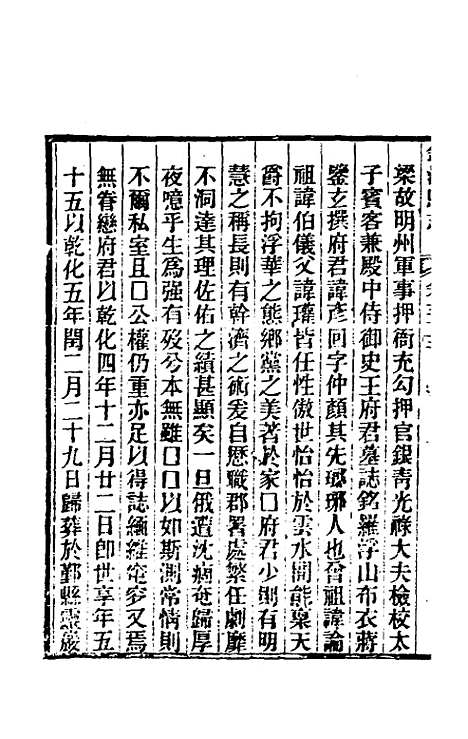 梁故明州軍事押衙充勾押官銀靑光祿大夫檢校太
子賓客兼殿中侍御史王府君墓誌銘羅浮山布衣蔣
鑒玄撰府君諱彥回字仲顏其先瑯琊人也曾祖諱論
祖諱伯儀父諱瓊皆任性傲世怡怡於雲水閒能棄天
爵不拘浮華之態鄉黨之美著於家囗府君少則有明
慧之稱長則有幹濟之術爰自歷職郡署處繁任劇靡
不洞達其理佐佑之績甚顯矣一旦俄遘沈痾奄歸厚
夜噫乎生爲强有歿兮本無雖囗囗以如斯測常情則
不爾私室且囗公權仍重亦足以得誌緬維窀穸又焉
無眷戀府君以乾化四年十二月廿二日卽世享年五
十五以乾化五年閏二月二十九日歸葬於鄞縣靈巖